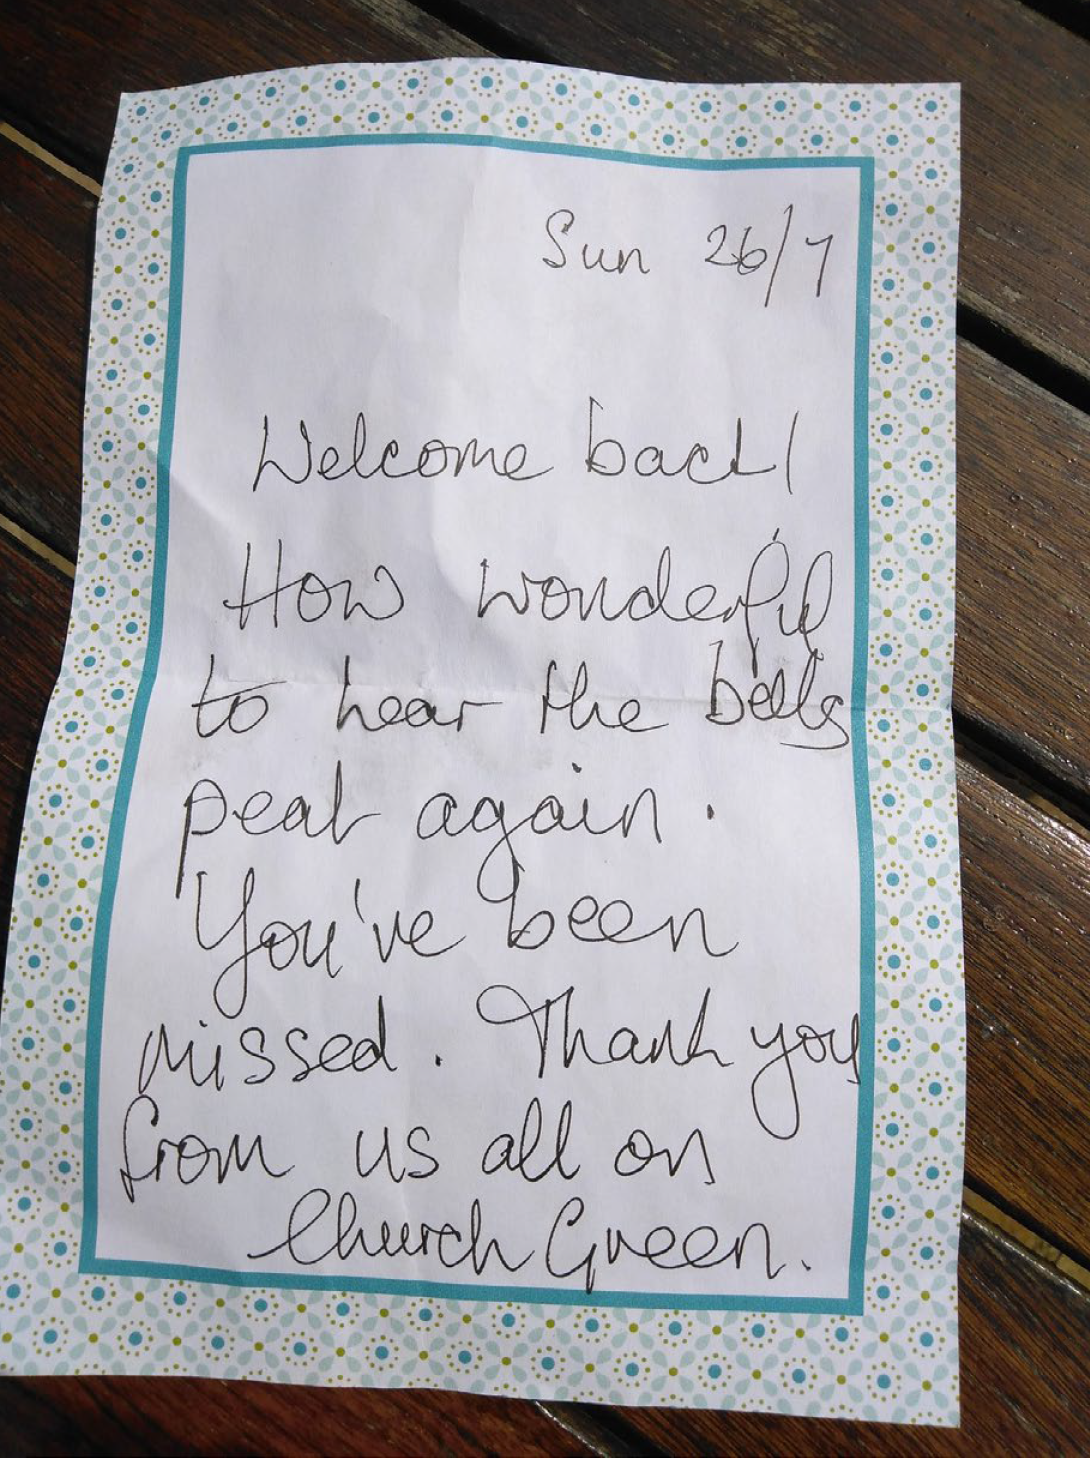 Sun 26/7
Welcome back!
How wonderful
to hear the bells
peal again.
You've been
missed. Thank you
from us all on
Church Green.